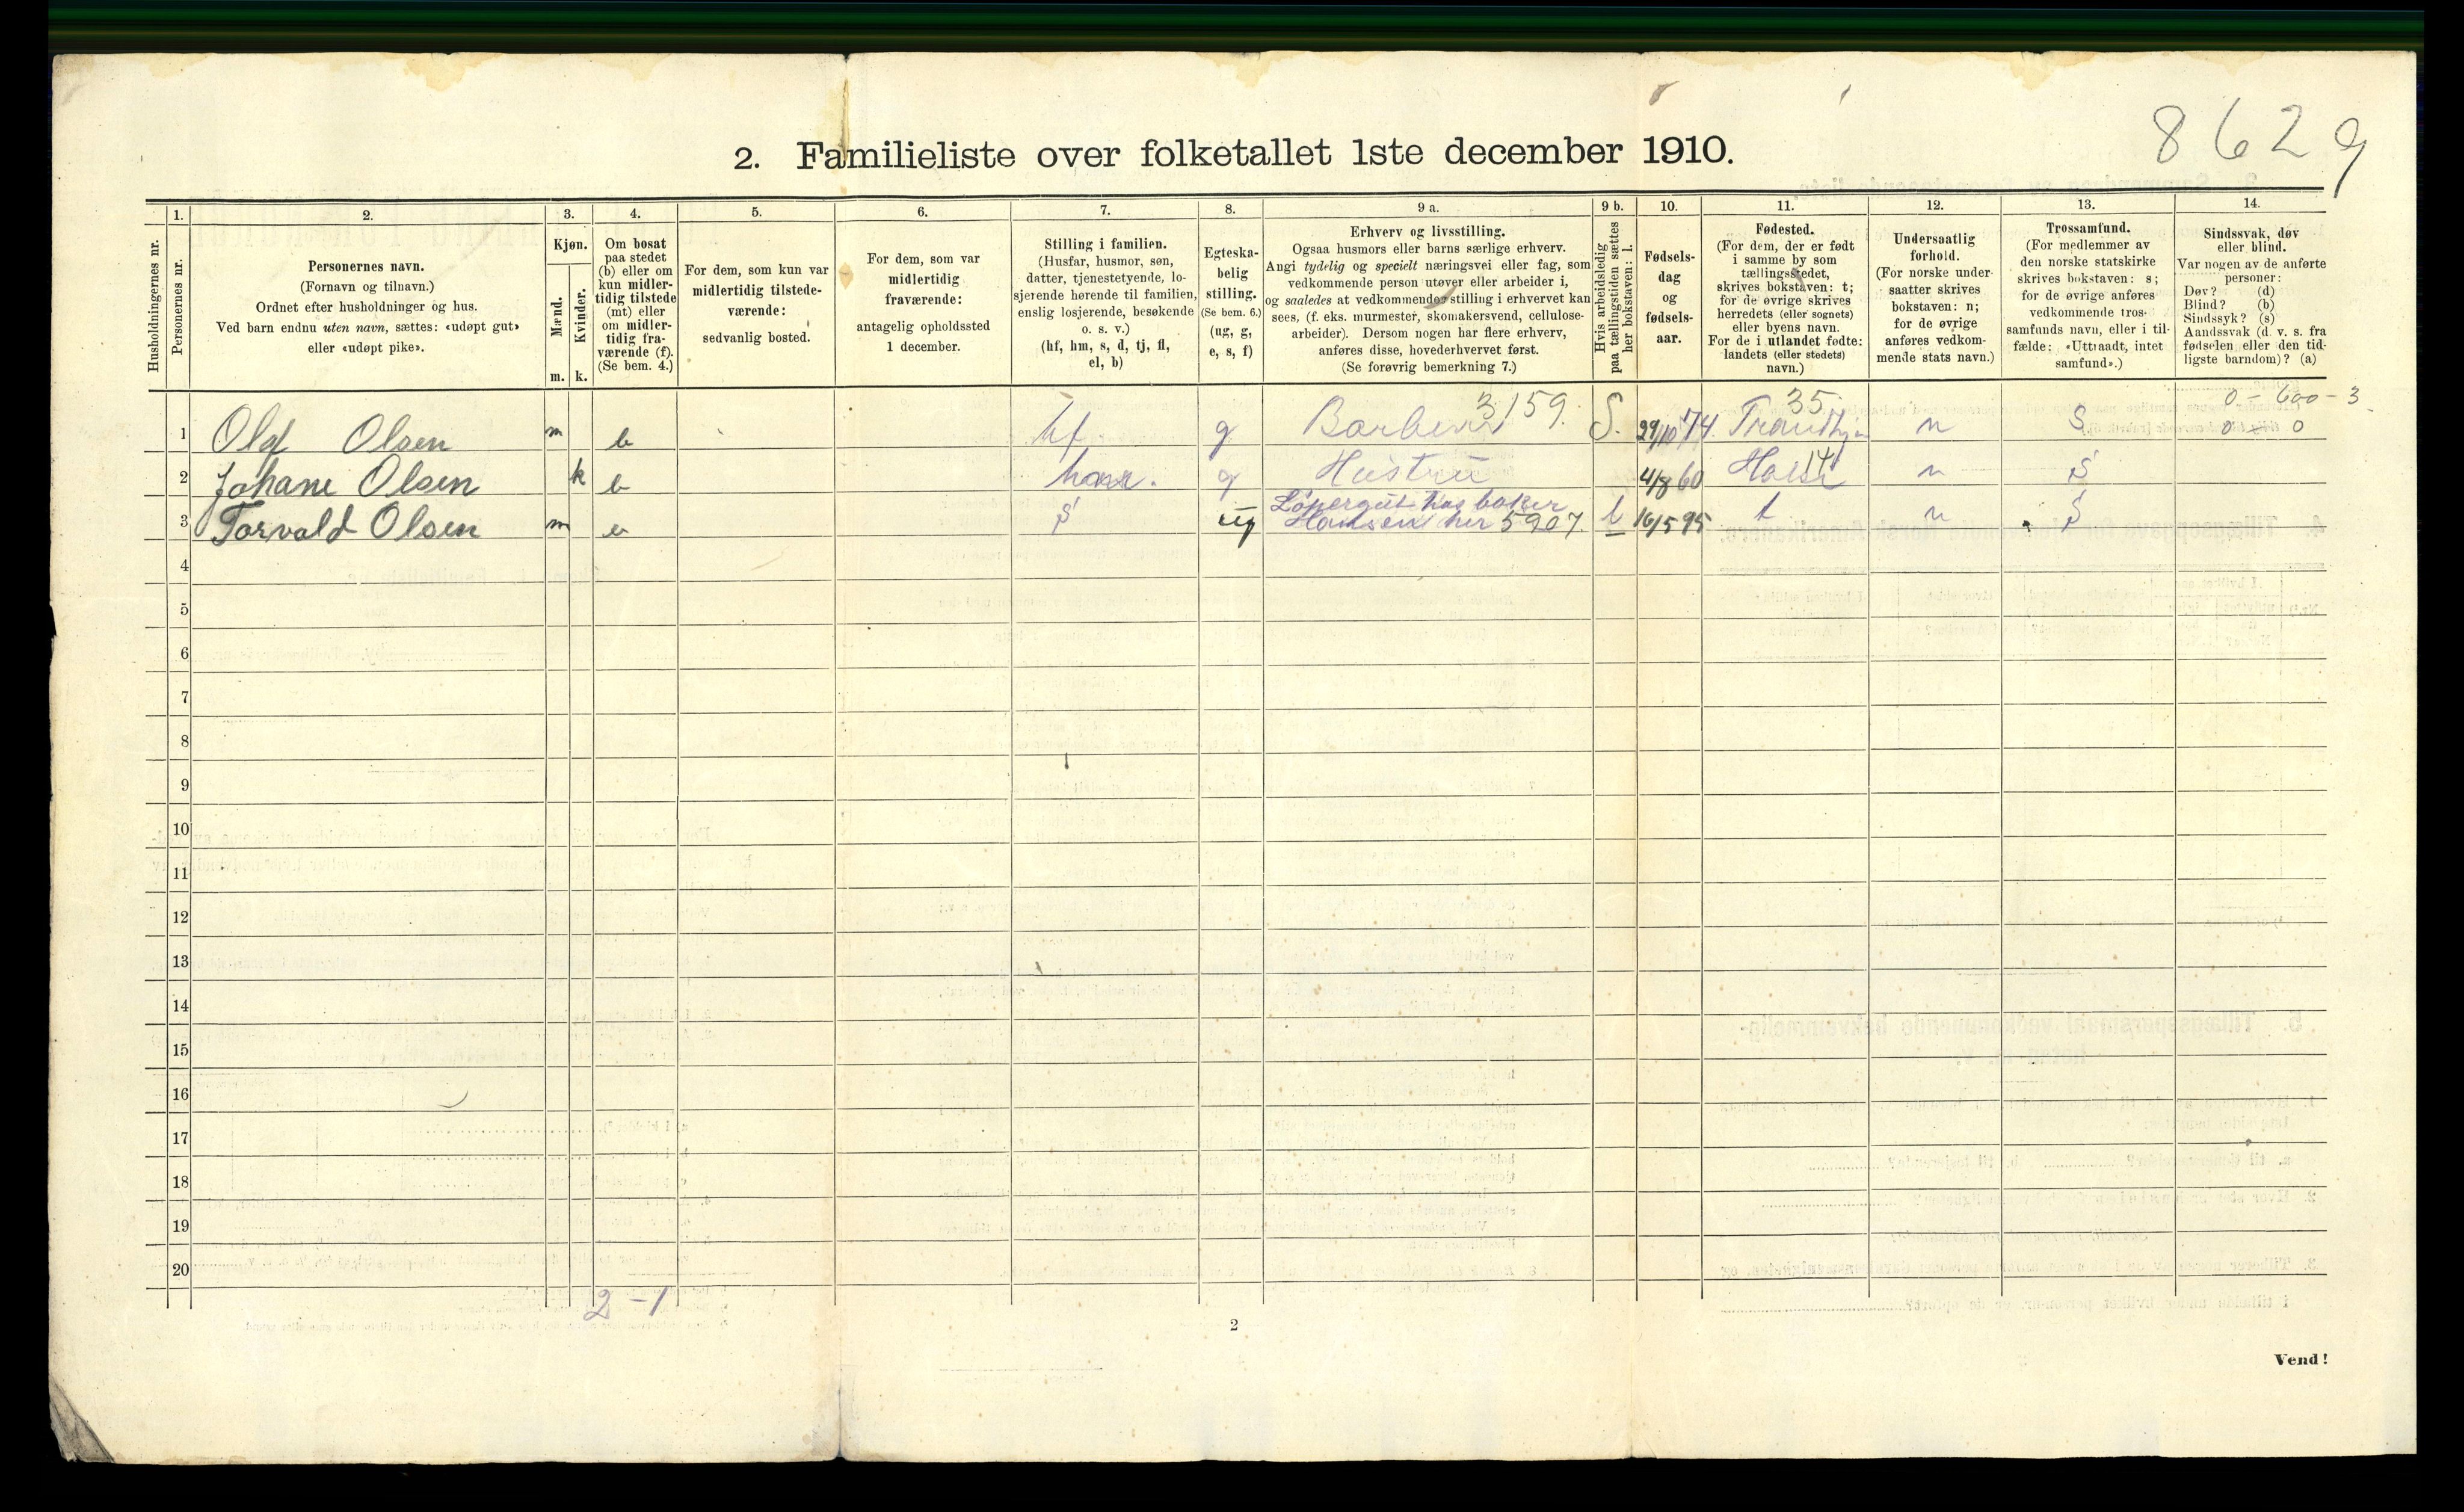 8629
2. Familieliste over folketallet 1ste december 1910.
Husholdningernes nr.
1.
Personernes nr.
2.
Personernes navn.
(Fornavn og tilnavn.)
Ordnet efter husholdninger og hus.
Ved barn endnu uten navn, sættes: «udøpt gut»
eller «udøpt pike».
3.
Kjøn.
Mænd.
Kvinder.
m. k.
4.
Om bosat
paa stedet
(b) eller om
kun midler-
tidig tilstede
(mt) eller
om midler-
tidig fra-
værende (f).
(Se bem. 4.)
5.
For dem, som kun var
midlertidig tilstede-
værende:
sedvanlig bosted.
6.
For dem, som var
midlertidig
fraværende:
antagelig opholdssted
1 december.
7.
Stilling i familien.
(Husfar, husmor, søn,
datter, tjenestetyende, lo-
sjerende hørende til familien,
enslig losjerende, besøkende
o. s. v.)
(hf, hm, s, d, tj, fl,
el, b)
8.
Egteska-
belig
stilling.
(Se bem. 6.)
(ug, g,
e, s, f)
9 a.
Erhverv og livsstilling.
Ogsaa husmors eller barns særlige erhverv.
Angi tydelig og specielt næringsvei eller fag, som
vedkommende person utøver eller arbeider i,
og saaledes at vedkommendes stilling i erhvervet kan
sees, (f. eks. murmester, skomakersvend, cellulose-
arbeider). Dersom nogen har flere erhverv,
anføres disse, hovederhvervet først.
(Se forøvrig bemerkning 7.)
9 b.
Hvis arbeidsledig
paa tællingstiden sættes
her bokstaven: l.
10.
Fødsels-
dag
og
fødsels-
aar.
11.
Fødested.
(For dem, der er født
i samme by som
tællingsstedet,
skrives bokstaven: t;
for de øvrige skrives
herredets (eller sognets)
eller byens navn.
For de i utlandet fødte:
landets (eller stedets)
navn.)
12.
Undersaatlig
forhold.
(For norske under-
saatter skrives
bokstaven: n;
for de øvrige
anføres vedkom-
mende stats navn.)
13.
Trossamfund.
(For medlemmer av
den norske statskirke
skrives bokstaven: s;
for de øvrige anføres
vedkommende tros-
samfunds navn, eller i til-
fælde: «Uttraadt, intet
samfund».)
14.
Sindssvak, døv
eller blind.
Var nogen av de anførte
personer:
Døv? (d)
Blind? (b)
Sindssyk? (s)
Aandssvak (d. v. s. fra
fødselen eller den tid-
ligste barndom)? (a)
3159. 35. 0 - 600 - 3
1 Olaf Olsen m b hf g Barber S. 29/10 '74. Trondhjem n S 0 0
2 Johane Olsen k b g Hustru 4/8 60 14 n S
Løpergut hos baker
3 Torvald Olsen m b S ug Hansen her 5907. l 16/5 95 t n S
4
5
6
7
8
9
10
11
12
13
14
15
16
17
18
19
20
2 - 1
2
Vend!